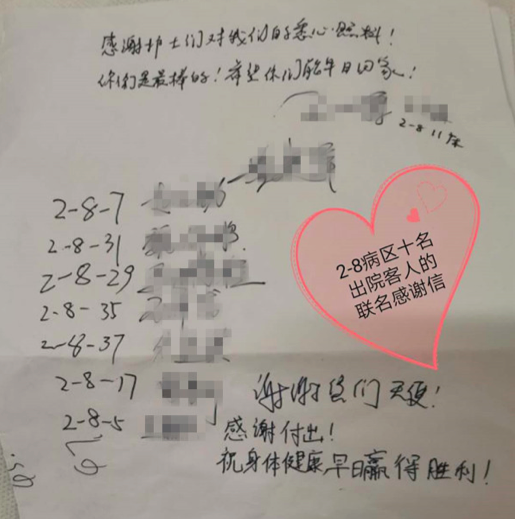 感谢护士们对我们的悉心照料！
你们是最棒的！希望你们能早日回家！
2-8 11床
2-8-7
2-8-31
2-8-29
2-8-35
2-8-37
2-8-17
2-8-5
2-8病区十名
出院客人的
联名感谢信
谢谢你们天使！
感谢付出！
祝身体健康早日赢得胜利！